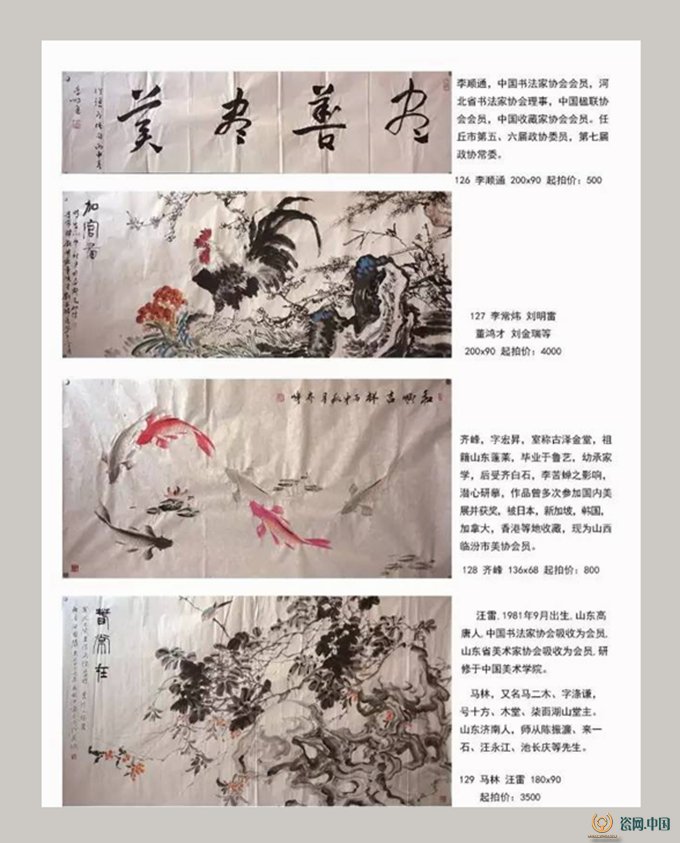 尽善尽美
李顺通，中国书法家协会会员，河
北省书法家协会理事，中国楹联协
会会员，中国收藏家协会会员。任
丘市第五、六届政协委员，第七届
政协常委。
126 李顺通 200x90 起拍价：500
加官图
127 李常炜 刘明雷
董鸿才 刘金瑞等
200x90 起拍价：4000
和顺吉祥
齐峰，字宏昇，室称古泽金堂，祖
籍山东蓬莱，毕业于鲁艺，幼承家
学，后受齐白石，李苦蝉之影响，
潜心研摹，作品曾多次参加国内美
展并获奖，被日本，新加坡，韩国，
加拿大，香港等地收藏，现为山西
临汾市美协会员。
128 齐峰 136x68 起拍价：800
春常在
汪雷.1981年9月出生,山东高
唐人.中国书法家协会吸收为会员,
山东省美术家协会吸收为会员,研
修于中国美术学院。
马林，又名马二木、字涤谦，
号十方、木堂、柒面湖山堂主。
山东济南人，师从陈振濂、来一
石、汪永江、池长庆等先生。
129 马林 汪雷 180x90
起拍价：3500
瓷网.中国